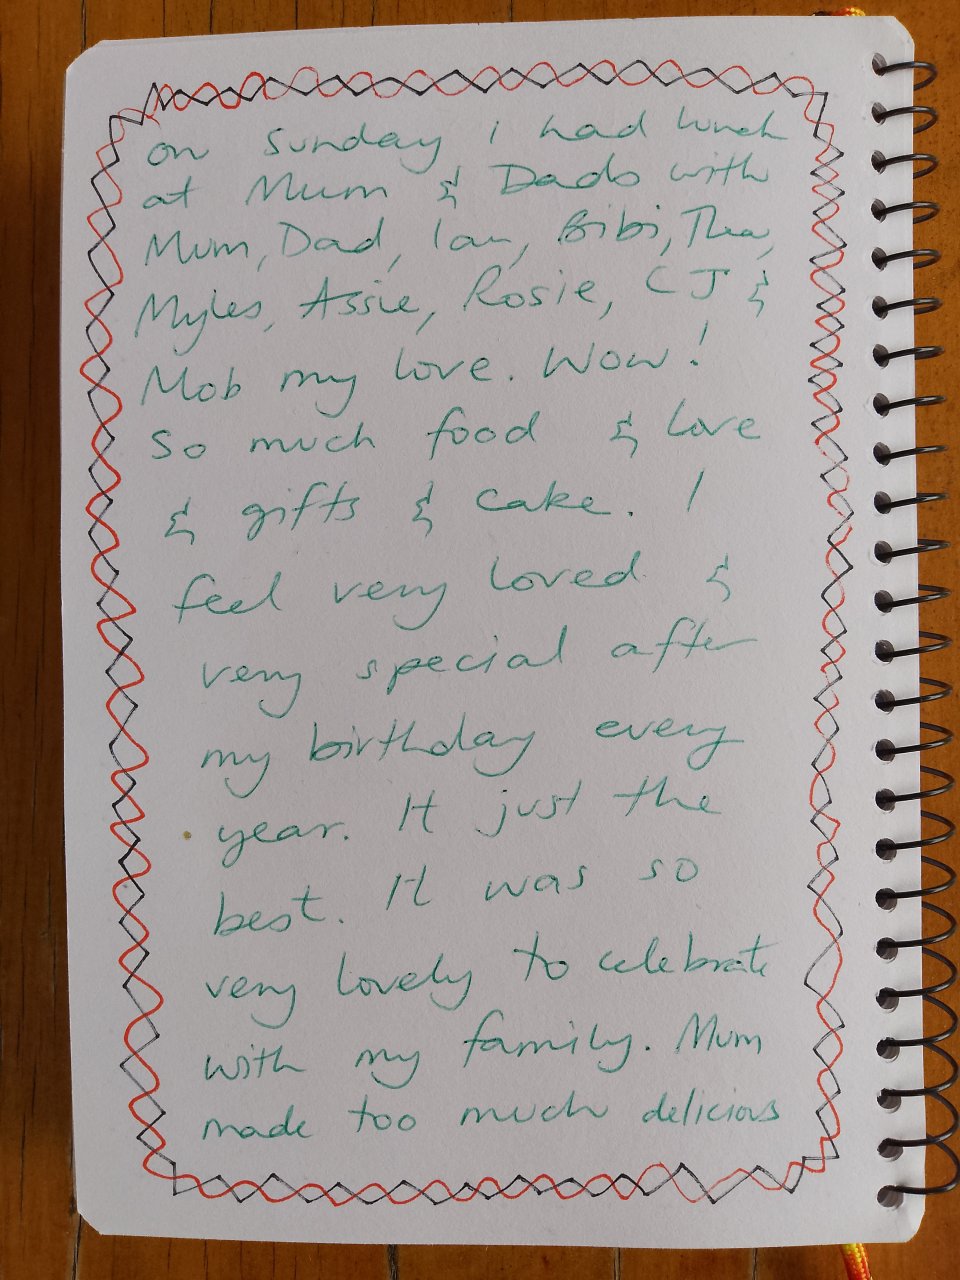 on Sunday I had lunch
at Mum & Dads with
Mum, Dad, Ian, Bibi, Thea,
Myles, Assie, Rosie, CJ &
Mob my love. Wow!
So much food & love
& gifts & cake. I
feel very loved &
very special after
my birthday every
year. It just the
best. It was so
very lovely to celebrate
with my family. Mum
made too much delicious